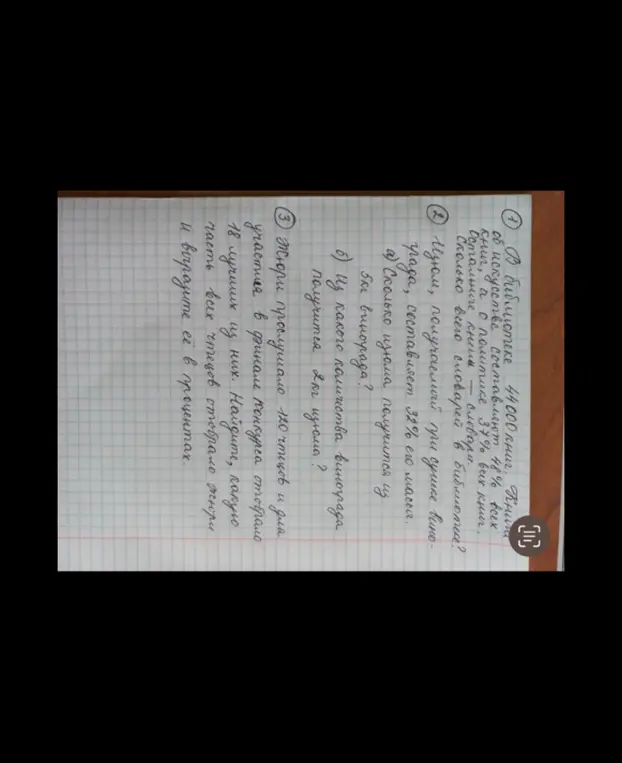 ① В библиотеке 44000 книг. Книги
об искусстве составляют 48% всех
книг, а о политике 37% всех книг.
Остальные книги — словари.
Сколько всего словарей в библиотеке?
② Изюм, получаемый при сушке вино-
града, составляет 32% его массы.
а) Сколько изюма получится из
5кг винограда?
б) Из какого количества винограда
получится 2кг изюма?
③ Жюри прослушало 120 чтецов и для
участия в финале конкурса отобрало
18 лучших из них. Найдите, какую
часть всех чтецов отобрало жюри
и выразите её в процентах.